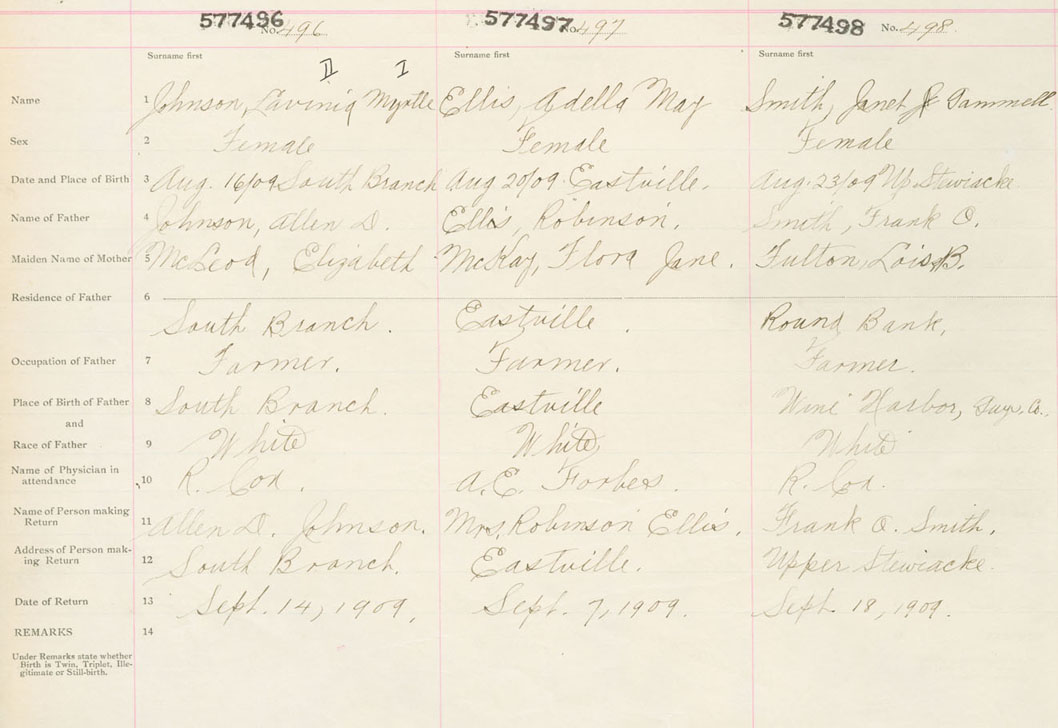 577496 No. 496 577497 No. 497 577498 No. 498
Surname first Surname first Surname first
II I
Name 1 Johnson, Lavinia Myrtle Ellis, Adella May Smith, Janet J. Tammell
Sex 2 Female Female Female
Date and Place of Birth 3 Aug. 16/09 South Branch Aug 20/09 Eastville. Aug. 23/09 Up. Stewiacke
Name of Father 4 Johnson, Allen D. Ellis, Robinson. Smith, Frank O.
Maiden Name of Mother 5 McLeod, Elizabeth McKay, Flora Jane. Fulton, Lois B.
Residence of Father 6
South Branch. Eastville. Round Bank,
Occupation of Father 7 Farmer. Farmer. Farmer.
Place of Birth of Father 8 South Branch. Eastville Wine Harbor, Guys. Co.
and
Race of Father 9 White White White
Name of Physician in
attendance 10 R. Cox. A. E. Forbes. R. Cox.
Name of Person making
Return 11 Allen D. Johnson. Mrs. Robinson Ellis. Frank O. Smith.
Address of Person mak-
ing Return 12 South Branch. Eastville. Upper Stewiacke.
Date of Return 13 Sept. 14, 1909. Sept. 7, 1909. Sept. 18, 1909.
REMARKS 14
Under Remarks state whether
Birth is Twin, Triplet, Ille-
gitimate or Still-birth.